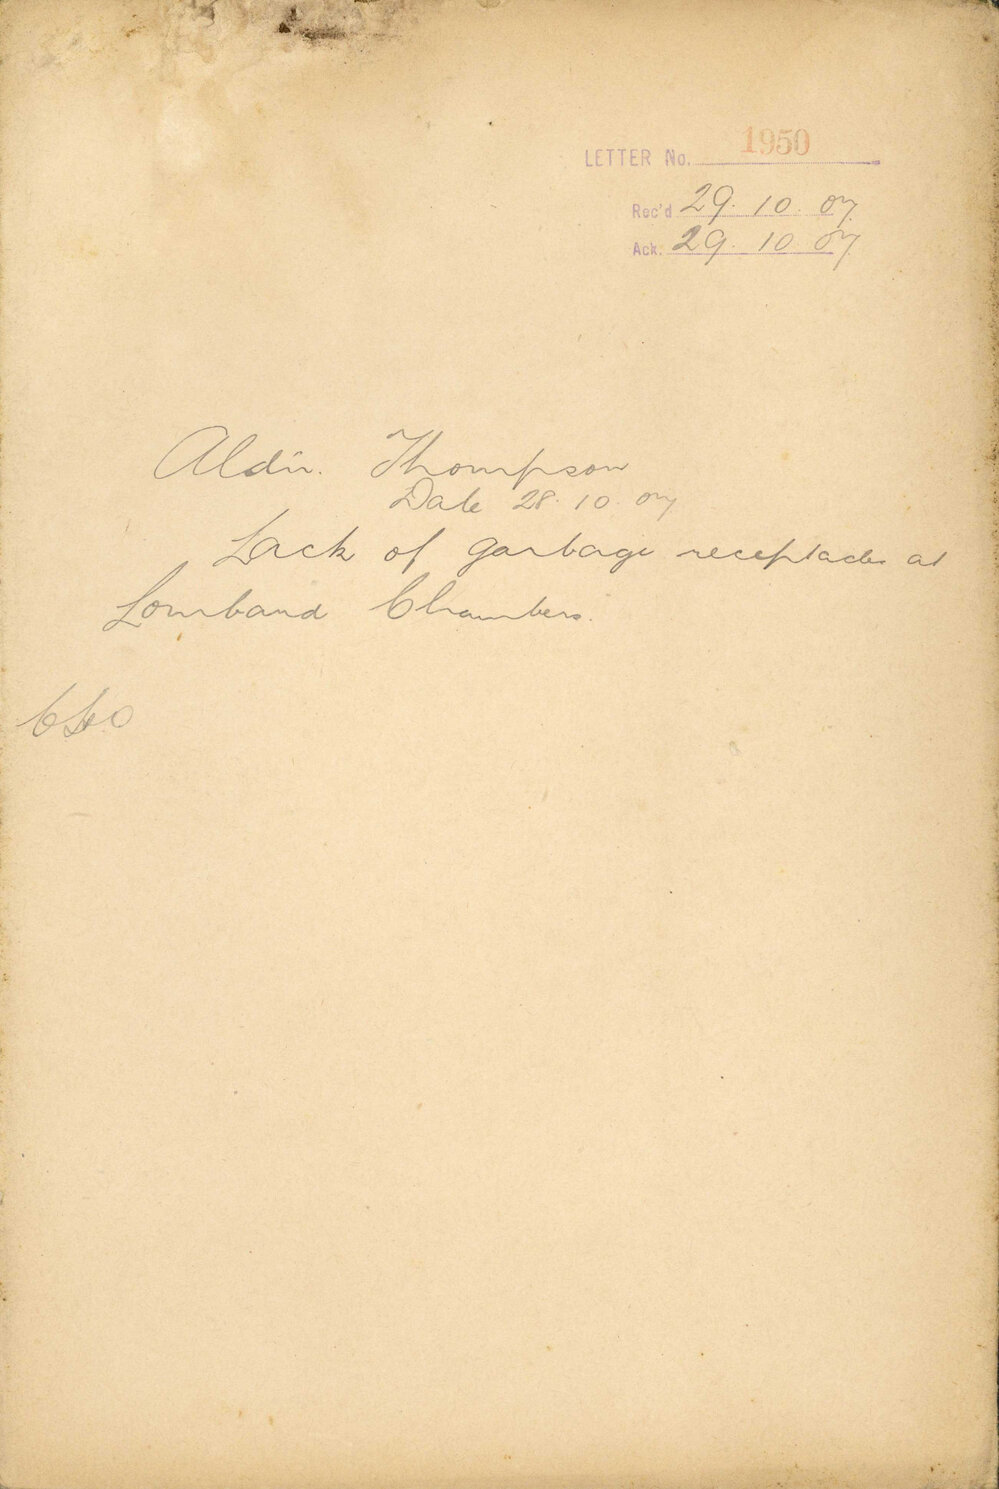 LETTER No. 1950
Rec'd 29. 10. 07
Ack. 29. 10. 07
Aldn. Thompson
Date 28. 10. 07
Lack of garbage receptacles at
Lombard Chambers.